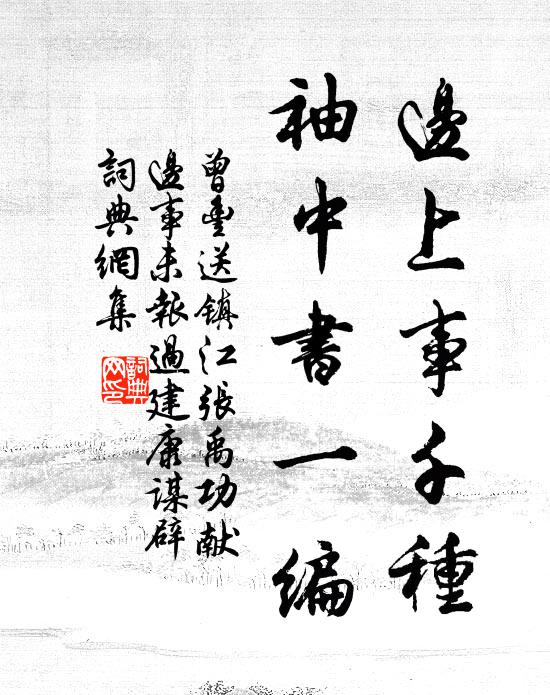 邊上事千種
袖中書一編
曾豐送鎮江張禹功献
邊事未報過建康謀辟
詞典網集
詞典
网印